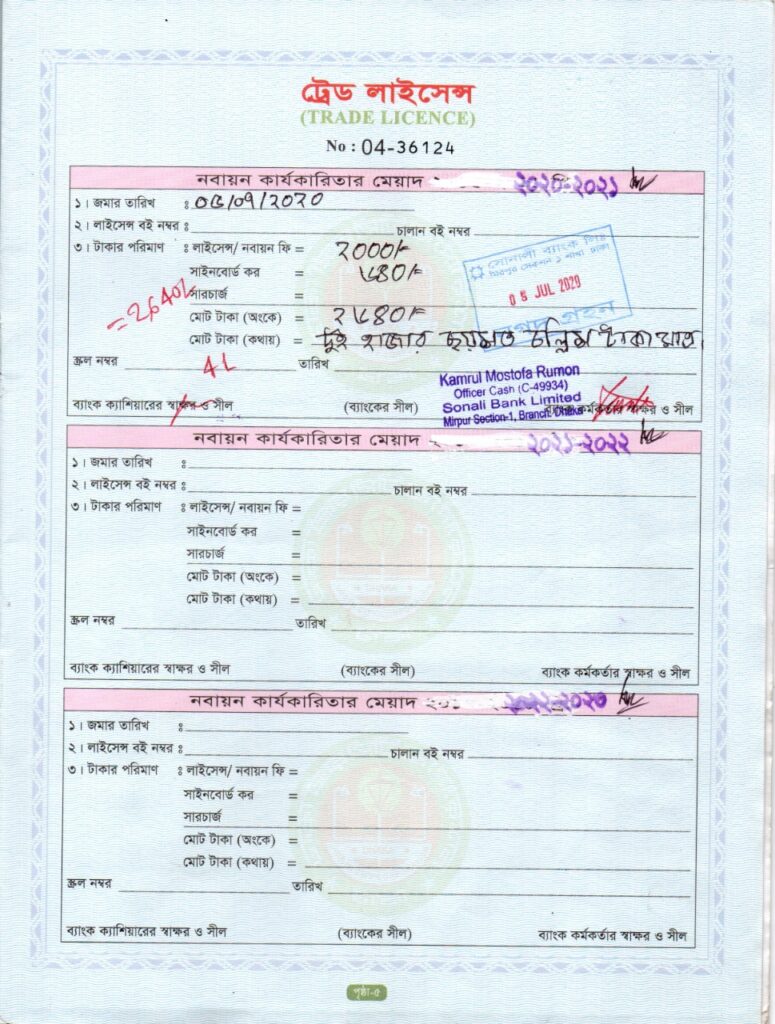 ট্রেড লাইসেন্স
(TRADE LICENCE)
No : 04-36124
নবায়ন কার্যকারিতার মেয়াদ ২০২০-২০২১
১। জমার তারিখ : ০৫/০৭/২০২০
২। লাইসেন্স বই নম্বর : চালান বই নম্বর
৩। টাকার পরিমাণ : লাইসেন্স/ নবায়ন ফি = ২০০০/-
সাইনবোর্ড কর = ৬৪০/-
সারচার্জ =
মোট টাকা (অংকে) = ২৬৪০/-
মোট টাকা (কথায়) = দুই হাজার ছয়শত চল্লিশ টাকা মাত্র।
=2,640/-
সোনালী ব্যাংক লিঃ
05 JUL 2020
নগদ গ্রহন
স্ক্রল নম্বর তারিখ
Kamrul Mostofa Rumon
Officer Cash (C-49934)
Sonali Bank Limited
Mirpur Section-1, Branch. Dhaka
ব্যাংক ক্যাশিয়ারের স্বাক্ষর ও সীল (ব্যাংকের সীল) ব্যাংক কর্মকর্তার স্বাক্ষর ও সীল
নবায়ন কার্যকারিতার মেয়াদ ২০২১-২০২২
১। জমার তারিখ :
২। লাইসেন্স বই নম্বর : চালান বই নম্বর
৩। টাকার পরিমাণ : লাইসেন্স/ নবায়ন ফি =
সাইনবোর্ড কর =
সারচার্জ =
মোট টাকা (অংকে) =
মোট টাকা (কথায়) =
স্ক্রল নম্বর তারিখ
ব্যাংক ক্যাশিয়ারের স্বাক্ষর ও সীল (ব্যাংকের সীল) ব্যাংক কর্মকর্তার স্বাক্ষর ও সীল
নবায়ন কার্যকারিতার মেয়াদ ২০২২-২০২৩
১। জমার তারিখ :
২। লাইসেন্স বই নম্বর : চালান বই নম্বর
৩। টাকার পরিমাণ : লাইসেন্স/ নবায়ন ফি =
সাইনবোর্ড কর =
সারচার্জ =
মোট টাকা (অংকে) =
মোট টাকা (কথায়) =
স্ক্রল নম্বর তারিখ
ব্যাংক ক্যাশিয়ারের স্বাক্ষর ও সীল (ব্যাংকের সীল) ব্যাংক কর্মকর্তার স্বাক্ষর ও সীল
পৃষ্ঠা-৫